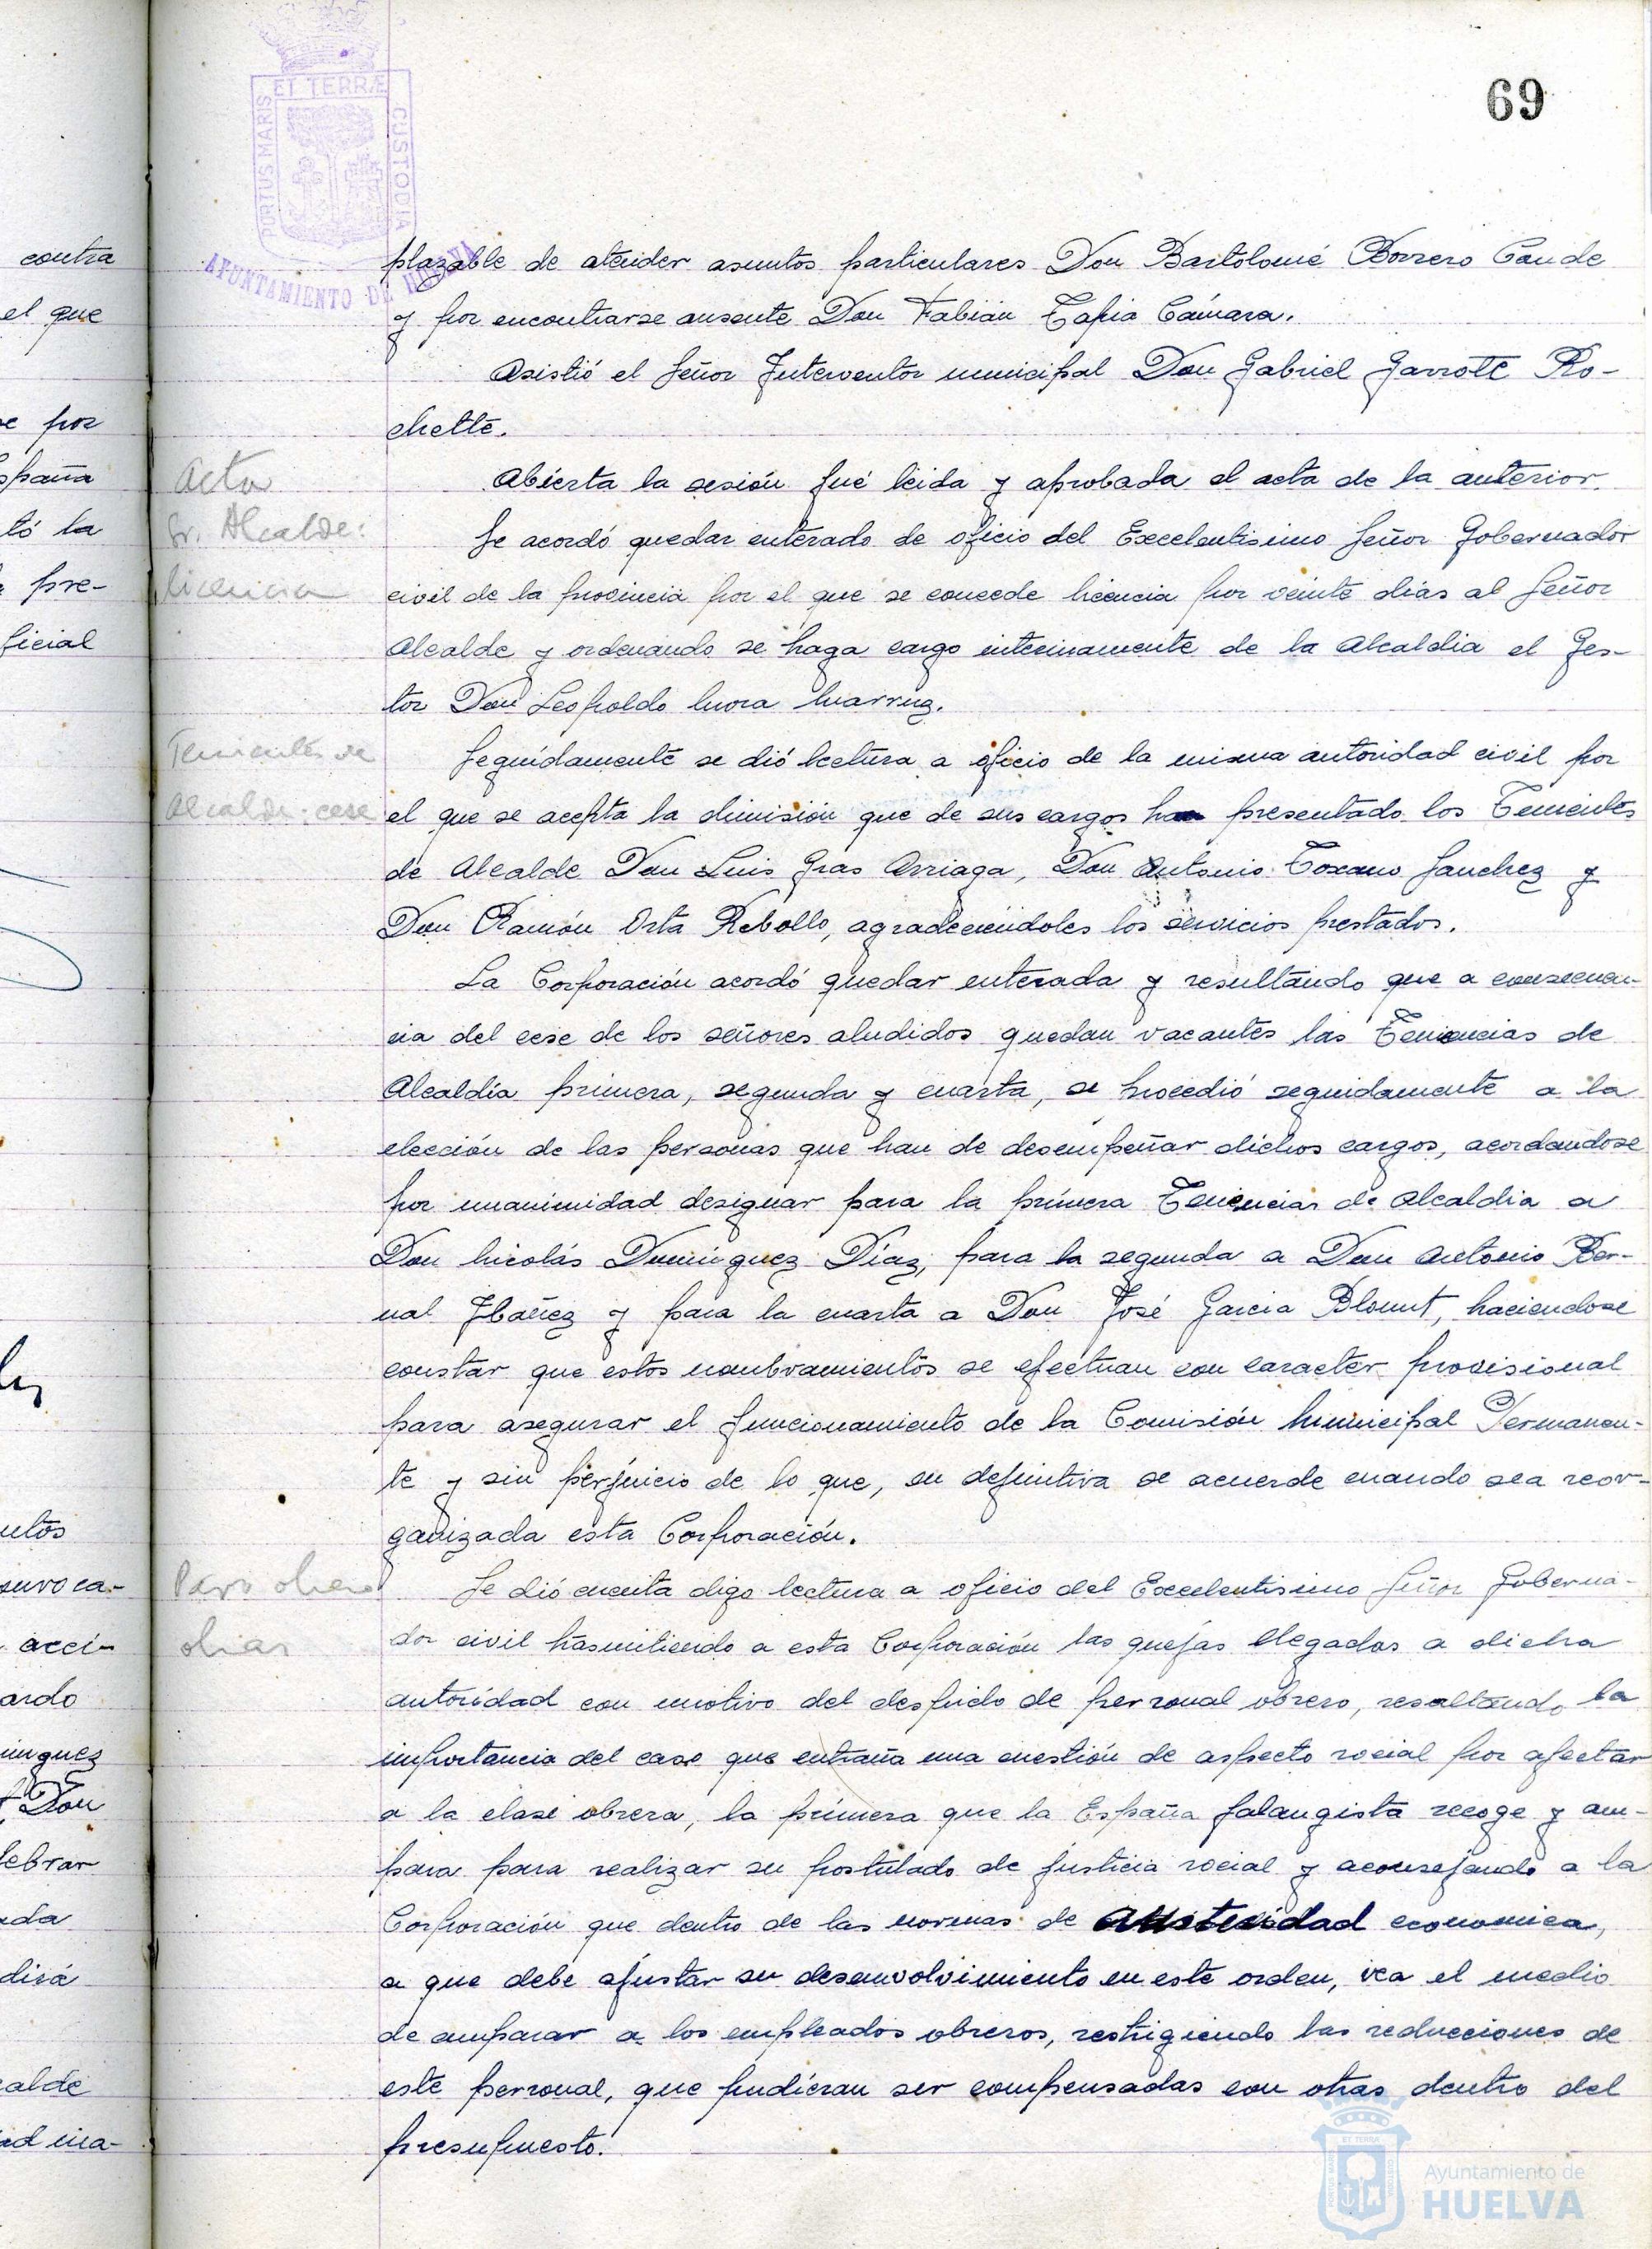 69
PORTUS MARIS ET TERRÆ CUSTODIA
AYUNTAMIENTO DE HUELVA
plazable de atender asuntos particulares Don Bartolomé Borrero Conde
y por encontrarse ausente Don Fabián Tapia Cámara.
Asistió el Señor Interventor municipal Don Gabriel Garrote Ro-
chette.
Acta
Abierta la sesión fué leida y aprobada el acta de la anterior.
Sr. Alcalde:
Se acordó quedar enterado de oficio del Excelentisimo Señor Gobernador
licencia
civil de la provincia por el que se concede licencia por veinte dias al Señor
Alcalde y ordenando se haga cargo interinamente de la Alcaldia el Ges-
tor Don Leopoldo Mora
Tenientes de
Seguidamente se dió lectura a oficio de la misma autoridad civil por
Alcalde: cese
el que se acepta la dimisión que de sus cargos han presentado los Tenientes
de Alcalde Don Luis Gras Arriaga, Don Antonio Toscano Sanchez y
Don Ramón Orta Rebollo, agradeciéndoles los servicios prestados.
La Corporación acordó quedar enterada y resultando que a consecuen-
cia del cese de los señores aludidos quedan vacantes las Tenencias de
Alcaldía primera, segunda y cuarta, se procedió seguidamente a la
elección de las personas que han de desempeñar dichos cargos, acordandose
por unanimidad designar para la primera Tenencias de Alcaldia a
Don Nicolás Dominguez Díaz, para la segunda a Don Antonio Ber-
nal Ibañez y para la cuarta a Don José Garcia Blount, haciendose
constar que estos nombramientos se efectuan con caracter provisional
para asegurar el funcionamiento de la Comisión Municipal Permanen-
te y sin perjuicio de lo que, en definitiva se acuerde cuando sea reor-
ganizada esta Corporación.
Paro obrero
Se dió cuenta digo lectura a oficio del Excelentisimo Señor Goberna-
dor civil trasmitiendo a esta Corporación las quejas llegadas a dicha
autoridad con motivo del despido de personal obrero, resaltando la
importancia del caso que entraña una cuestión de aspecto social por afectar
a la clase obrera, la primera que la España falangista recoge y am-
para para realizar su postulado de justicia social y aconsejando a la
Corporación que dentro de las normas de austeridad economica,
a que debe ajustar su desenvolvimiento en este orden, vea el medio
de amparar a los empleados obreros, restrigiendo las reducciones de
este personal, que pudieran ser compensadas con otras dentro del
presupuesto.
Ayuntamiento de
HUELVA